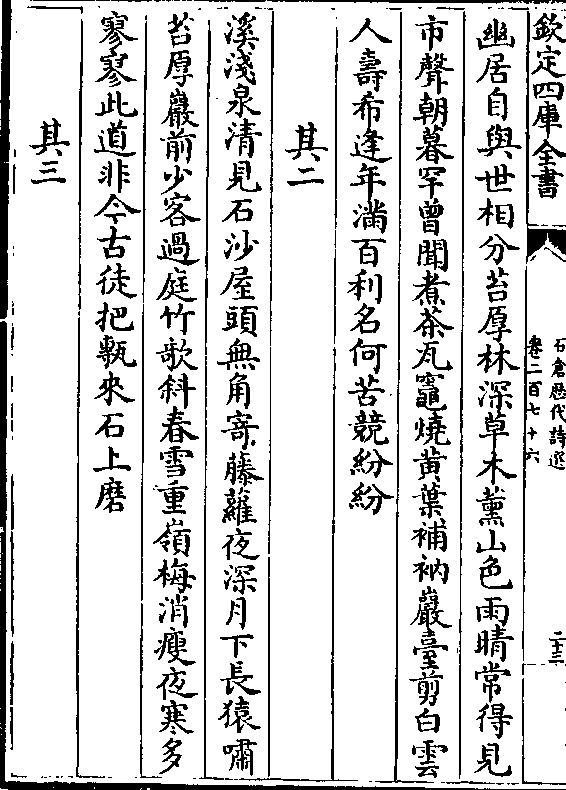 欽定四庫全書
石倉歷代詩選
卷二百七十六
二十三
幽居自與世相分苔厚林深草木薰山色雨晴常得見
市聲朝暮罕曾聞煮茶瓦竈燒黃葉補衲巖臺剪白雲
人壽希逢年滿百利名何苦競紛紛
其二
溪淺泉清見石沙屋頭無角寄藤蘿夜深月下長猿嘯
苔厚巖前少客過庭竹歌斜春雪重嶺梅消瘦夜寒多
寥寥此道非今古徒把甎來石上磨
其三